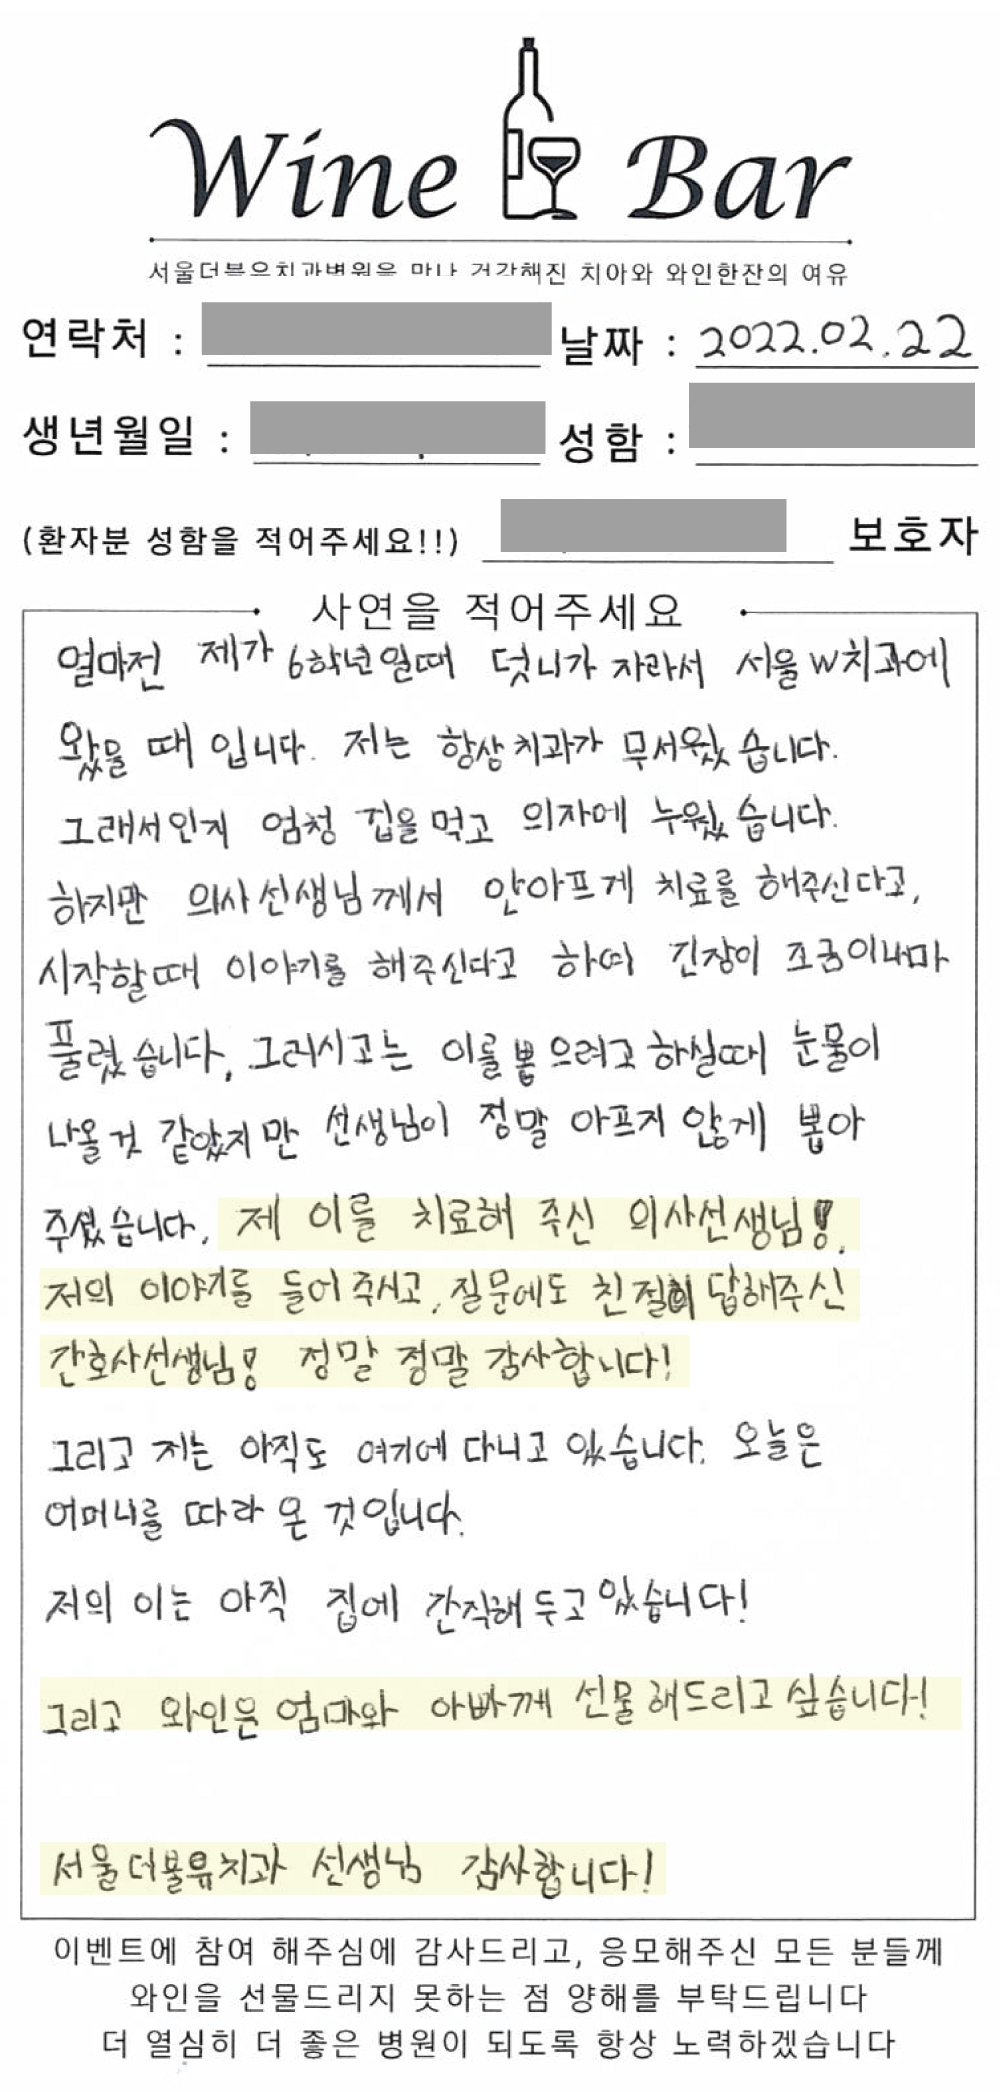 Wine Bar
서울더블유치과병원을 만나 건강해진 치아와 와인한잔의 여유
연락처 : 날짜 : 2022.02.22
생년월일 : 성함 :
(환자분 성함을 적어주세요!!) 보호자
사연을 적어주세요
얼마전 제가 6학년일때 덧니가 자라서 서울W치과에
왔을 때 입니다. 저는 항상 치과가 무서웠습니다.
그래서인지 엄청 겁을 먹고 의자에 누웠습니다.
하지만 의사선생님께서 안아프게 치료를 해주신다고,
시작할때 이야기를 해주신다고 하여 긴장이 조금이나마
풀렸습니다, 그러시고는 이를 뽑으려고 하실때 눈물이
나올 것 같았지만 선생님이 정말 아프지 않게 뽑아
주셨습니다, 제 이를 치료해 주신 의사선생님!,
저의 이야기를 들어 주시고, 질문에도 친절히 답해주신
간호사선생님! 정말 정말 감사합니다!
그리고 저는 아직도 여기에 다니고 있습니다. 오늘은
어머니를 따라 온 것입니다.
저의 이는 아직 집에 간직해 두고 있습니다!
그리고 와인은 엄마와 아빠께 선물 해드리고 싶습니다!
서울더블유치과 선생님 감사합니다!
이벤트에 참여 해주심에 감사드리고, 응모해주신 모든 분들께
와인을 선물드리지 못하는 점 양해를 부탁드립니다
더 열심히 더 좋은 병원이 되도록 항상 노력하겠습니다